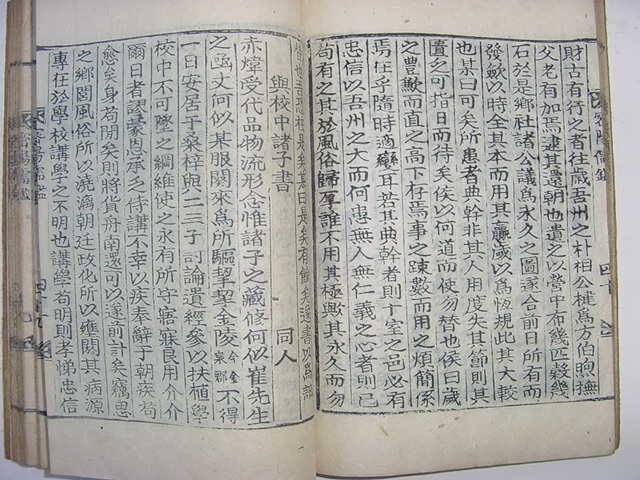 財古有行之者往歲吾州之朴相公樁爲方伯煦撫
父老有加焉逮其還朝也遺之以營中布幾匹穀幾
石於是鄉社諸公議爲永久之圖遂合前日所有而
發歛以時全其本而用其贏歲以爲恆規此其大較
也某曰可矣所患者典幹非其人用度失其節則其
匱之可指日而待矣俟以何道而使勿替也侯曰歲
之豊歉而直之高下存焉事之踈數而用之煩簡係
焉在乎隨時適變耳若其典幹者則十室之邑必有
忠信以吾州之大而何患無人無仁義之心者則已
苟有之其於風俗歸厚誰不用其極與其永久而勿
與校中諸子書
同人
赤熛受代品物流形念惟諸子之藏修何似崔先生
之函丈何似某服闋來爲所驅挈聖金陵今金泉郡不得
一日安居于桑梓與二三子討論遺經參以扶植學
校中不可墜之綱維使之永有所守寤寐艮用介介
爾日者謬蒙恩承乏侍講不幸以疾奉辭于朝疾苟
愈矣身苟閑矣則將貨舟南還可以遂前計矣竊思
之鄉閭風俗所以澆漓朝廷政化所以雍閼其病源
專在於學校講學之不明也講學苟明則孝悌忠信